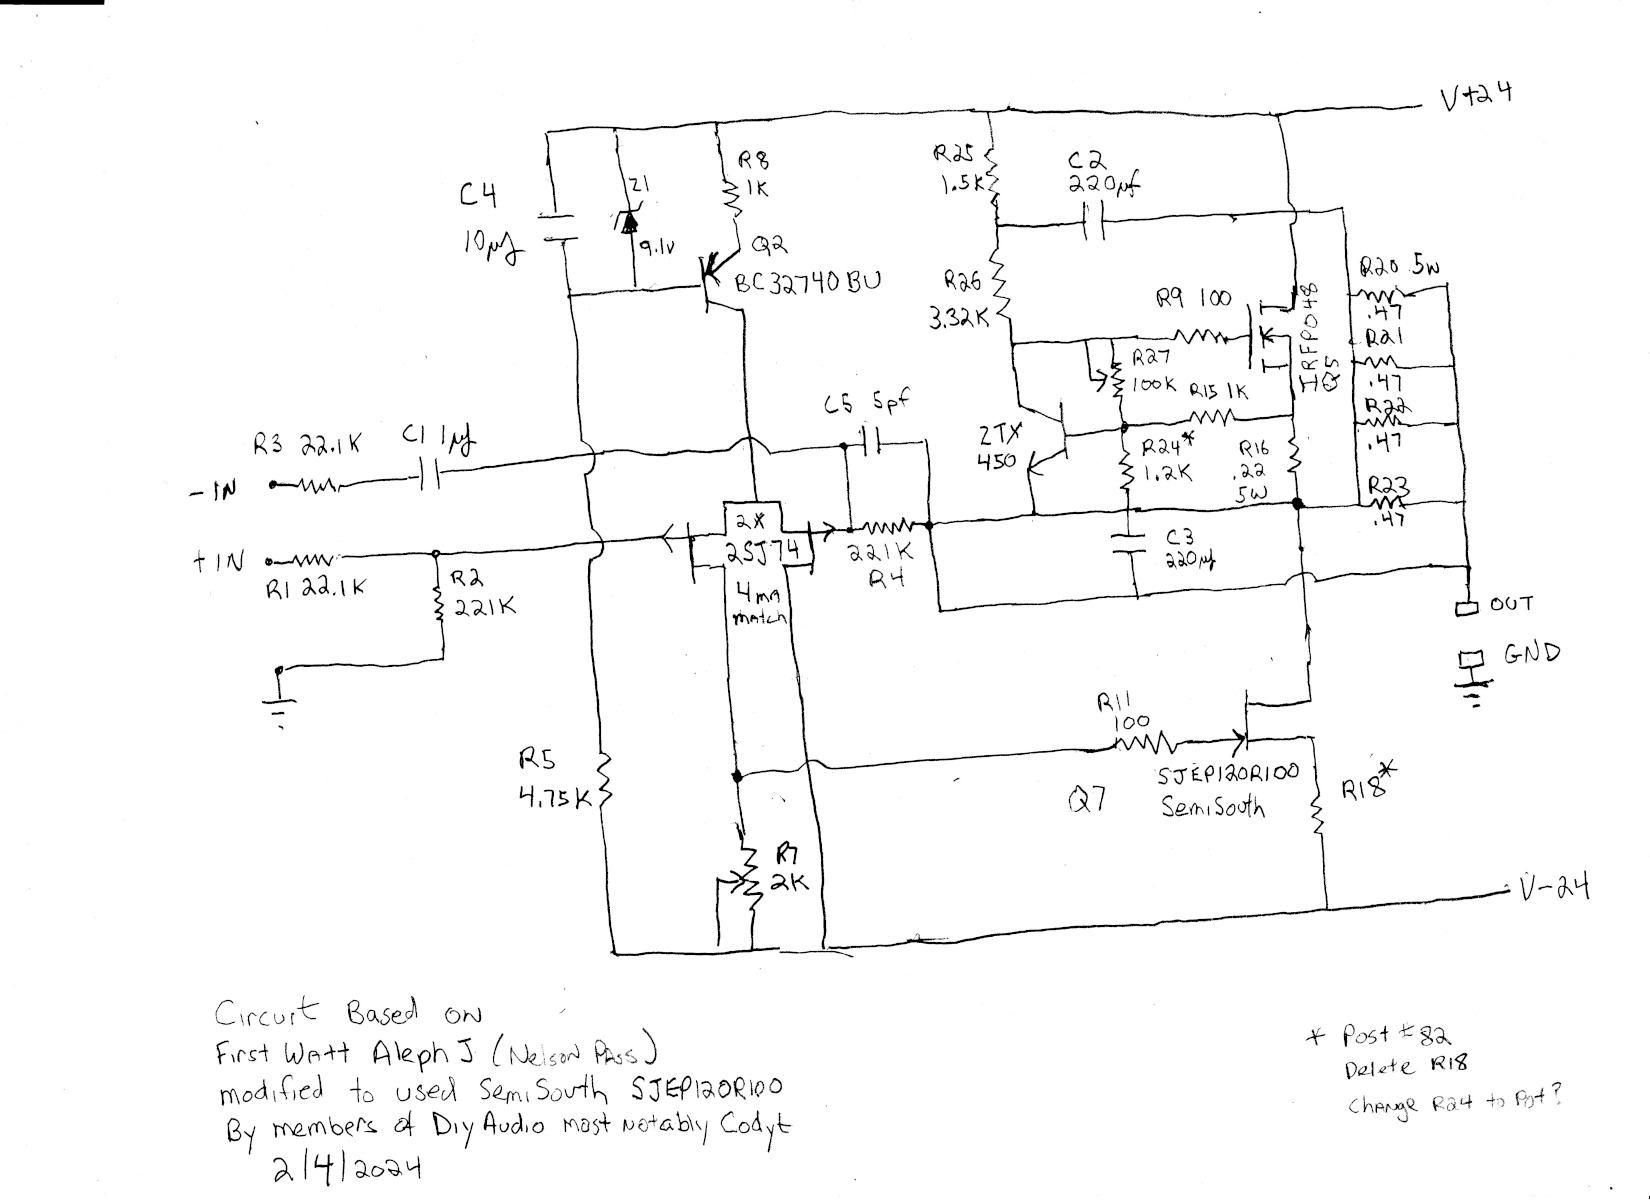 V+24
C4
10µf
Z1
9.1V
R8
1K
Q2
BC32740BU
R25
1.5K
C2
220µf
R26
3.32K
R9 100
IRFP048
Q5
R20 5W
.47
R21
.47
R22
.47
R23
.47
R27
100K
R15 1K
ZTX
450
R24*
1.2K
R16
.22
5W
C5 5pf
R3 22.1K
C1 1µf
-IN
+IN
R1 22.1K
R2
221K
2x
2SJ74
4ma
match
221K
R4
C3
220µf
OUT
GND
R11
100
SJEP120R100
SemiSouth
Q7
R18*
R5
4.75K
R7
2K
V-24
Circuit Based on
First Watt Aleph J (Nelson Pass)
modified to used SemiSouth SJEP120R100
By members of Diy Audio most notably Codyt
2/4/2024
* Post #82
Delete R18
Change R24 to Pot?